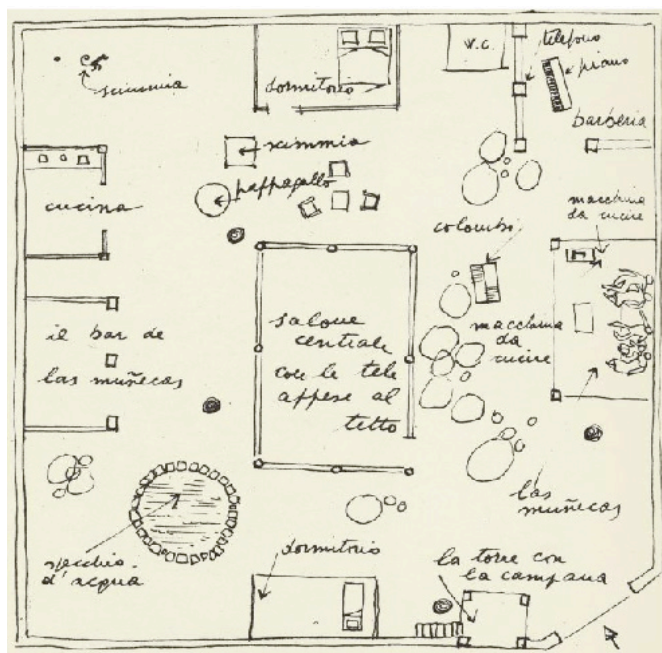 scimmia
dormitorio
W.C.
telefono
piano
barberia
scimmia
pappagallo
cucina
colombi
macchina
da cucire
il bar de
las muñecas
salone
centrale
con le tele
appese al
tetto
macchina
da cucire
las
muñecas
specchio
d'acqua
dormitorio
la torre con
la campana